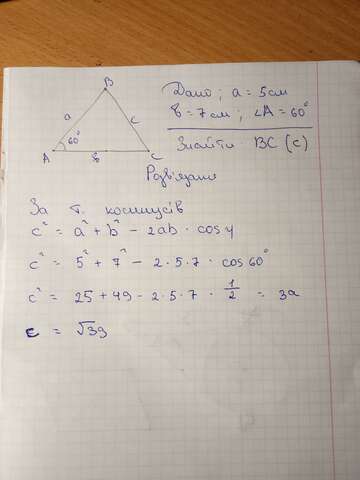 B
a
c
A
60°
в
C
Дано; a = 5 см
в = 7 см; ∠A = 60°
Знайти: BC (c)
Розв'язання
За т. косинусів
c² = a² + b² - 2ab · cos γ
c² = 5² + 7² - 2·5·7 · cos 60°
c² = 25 + 49 - 2·5·7 · 1/2 = 39
c = √39